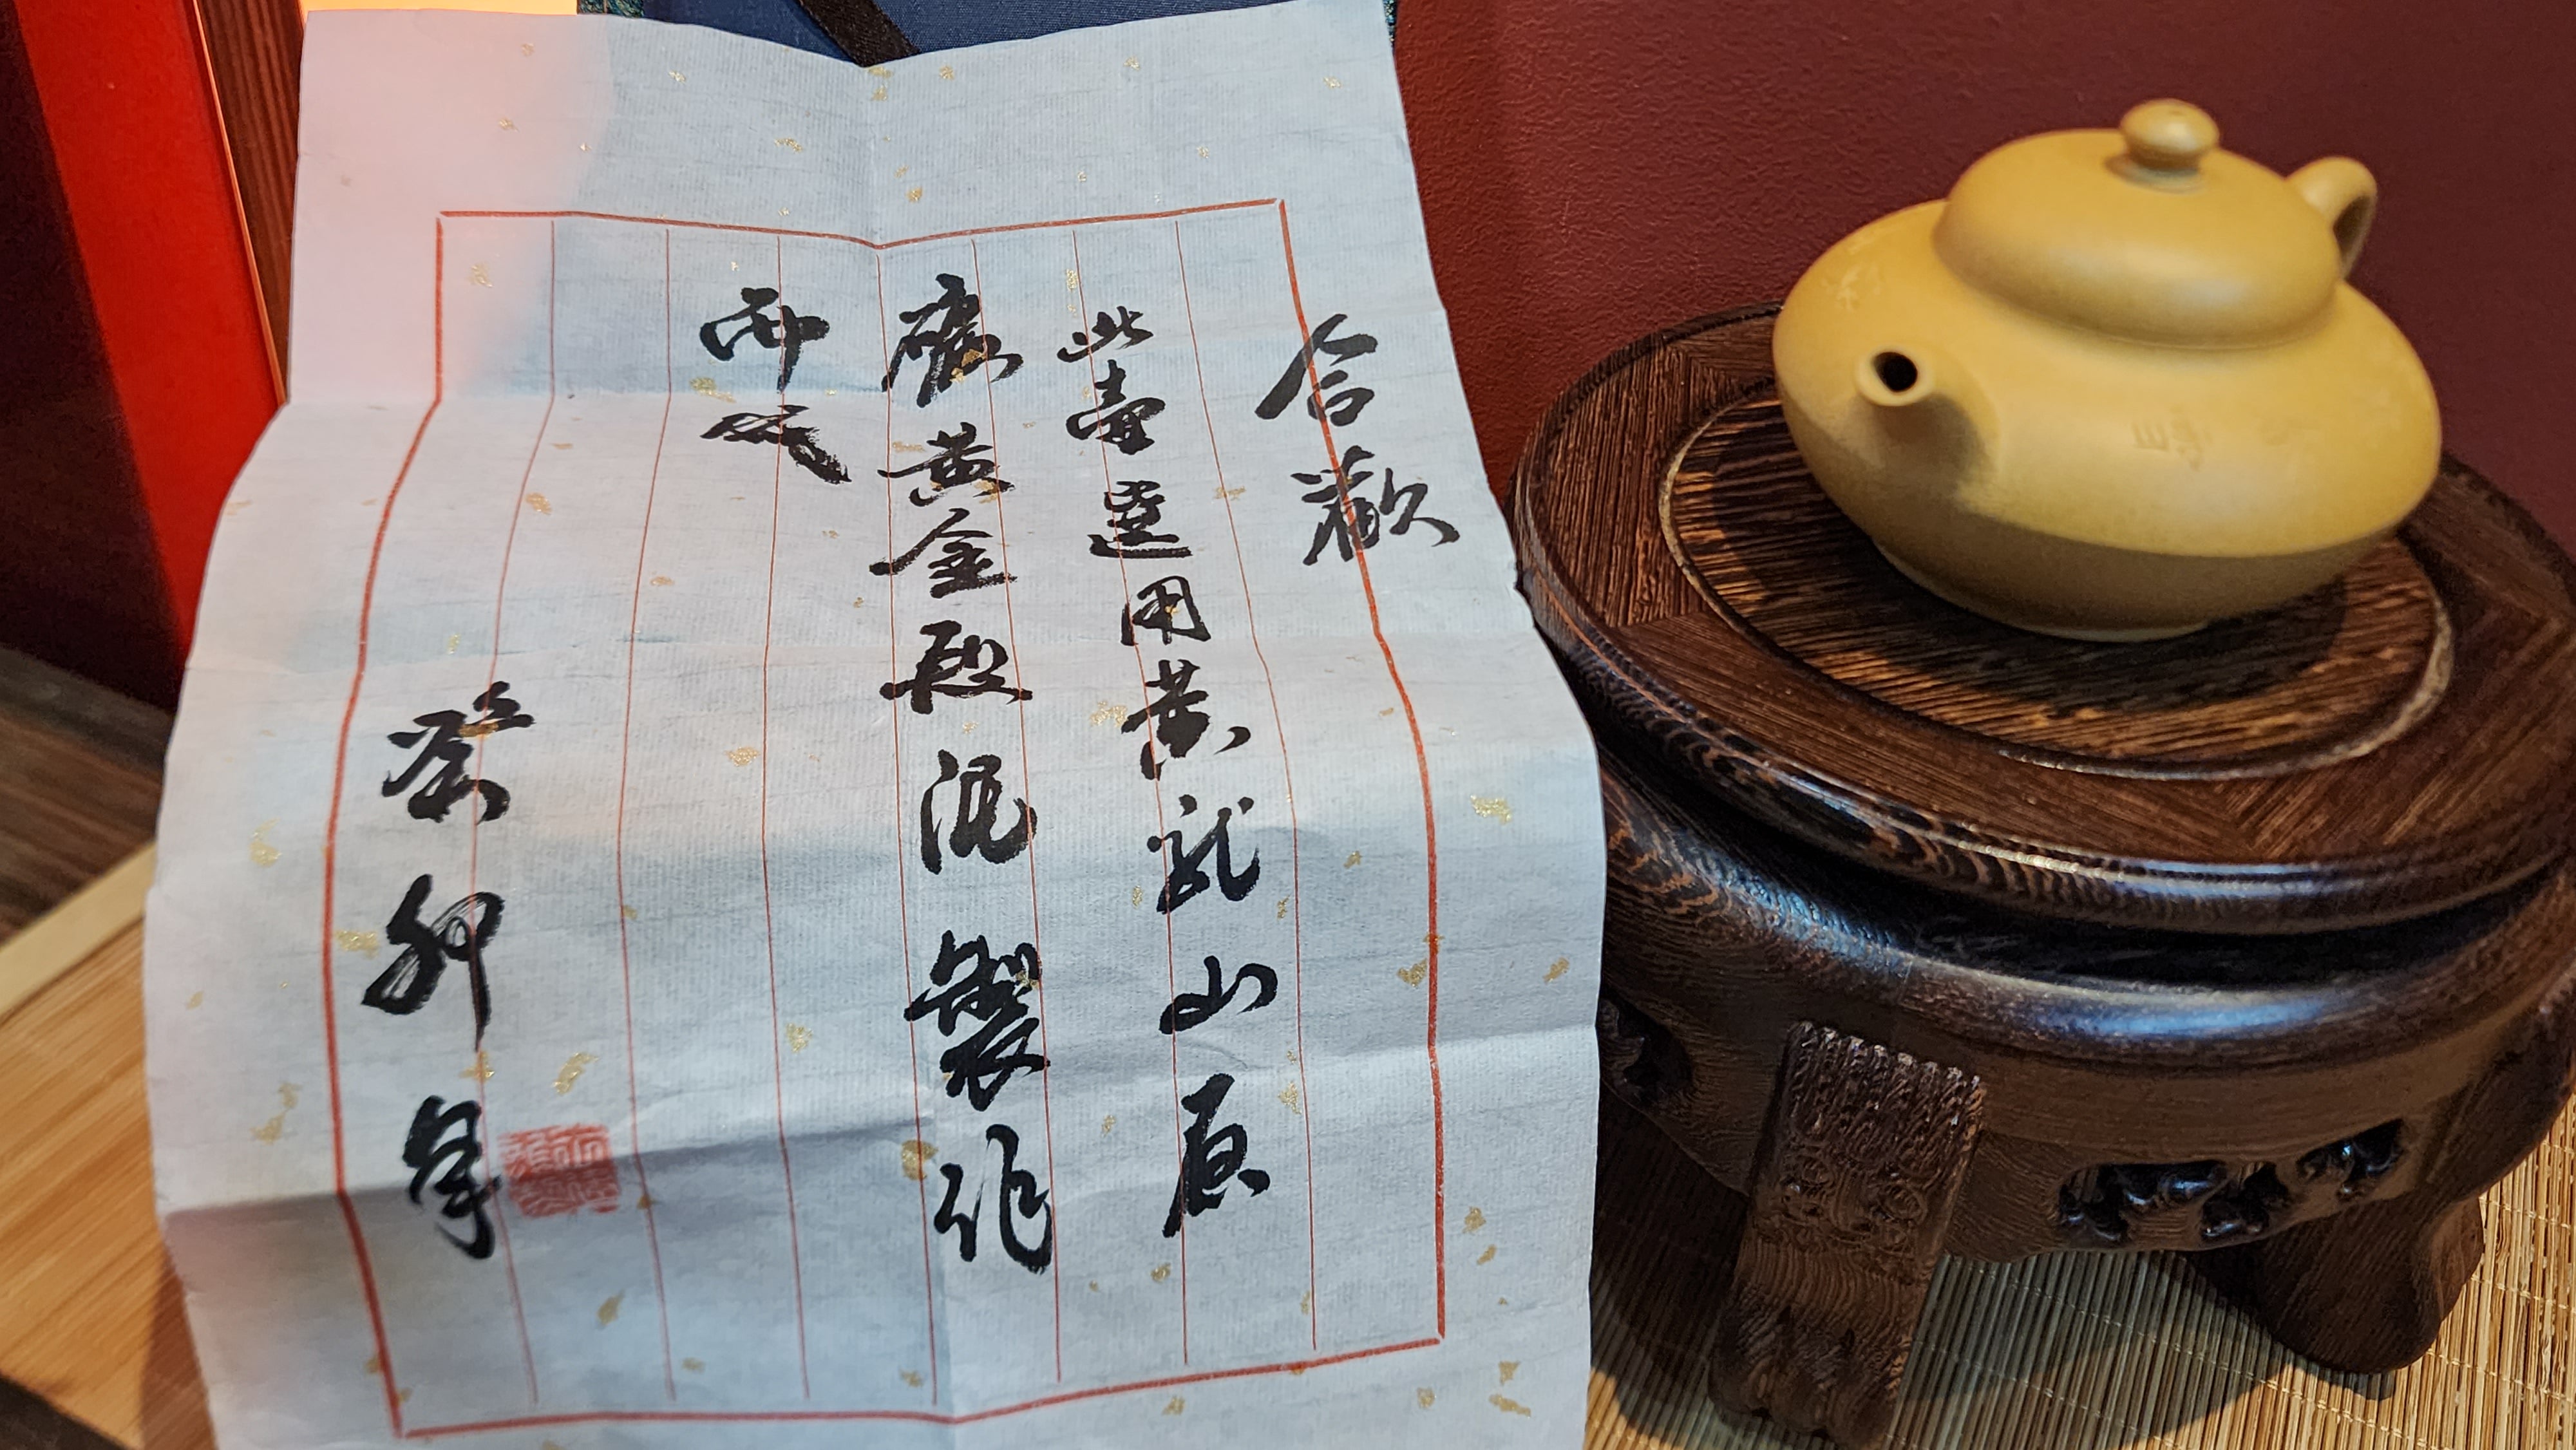 合歡
此壺選用黃龍山原
礦黃金段泥製作
而成
癸卯年